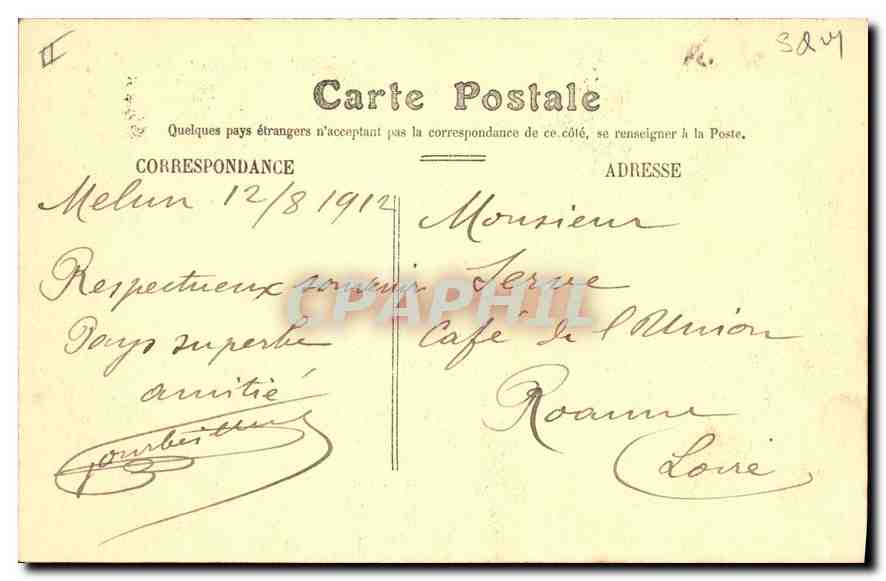 Carte Postale
Quelques pays étrangers n'acceptant pas la correspondance de ce côté, se renseigner à la Poste.
CORRESPONDANCE
Melun 12/8 1912
Respectueux souvenir
Pays superbe
amitié
ADRESSE
Monsieur
Serve
Café de l'Union
Roanne
Loire
CPAPHIL